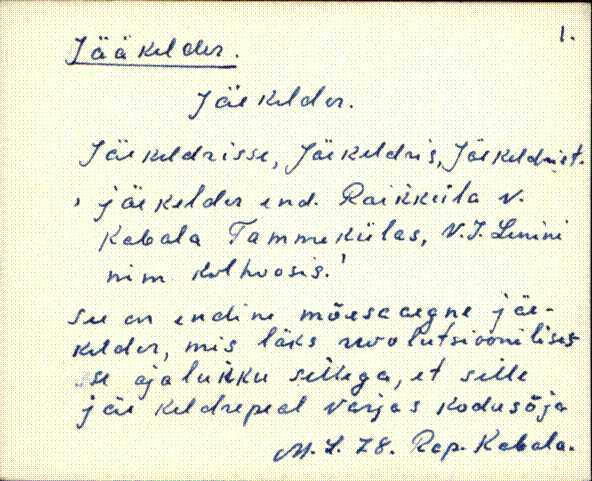 1.
Jääkelder.
Jäe kelder.
Jäe keldrisse, Jäe keldris, Jäe keldrist.
' jäe kelder end. Raikküla v.
Kabala Tammekülas, V. I. Lenini
nim. kolhoosis.'
See on endine mõesaaegne jäe-
kelder, mis läks revolutsioonilises-
se ajalukku sellega, et selle
jäe keldrepeal varjas kodusõja
M. L. 78. Rap. Kabala.